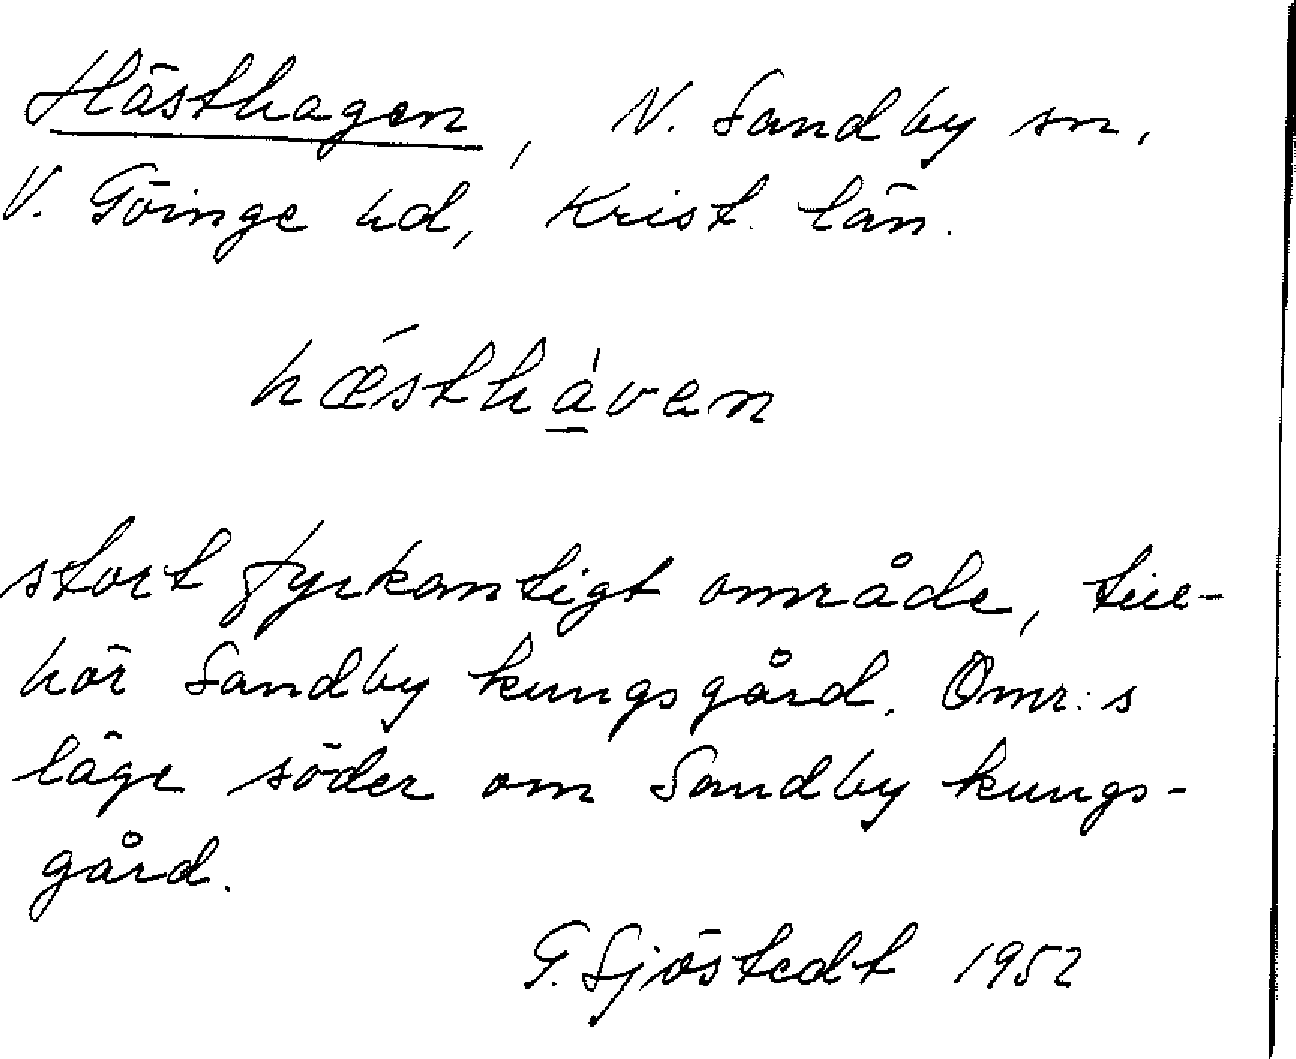 Hästhagen, N. Sandby sn,
V. Göinge hd, Krist. län.
hǽsthàven
stort fyrkantigt område, till-
hör Sandby kungsgård. Omr:s
läge söder om Sandby kungs-
gård.
G. Sjöstedt 1952